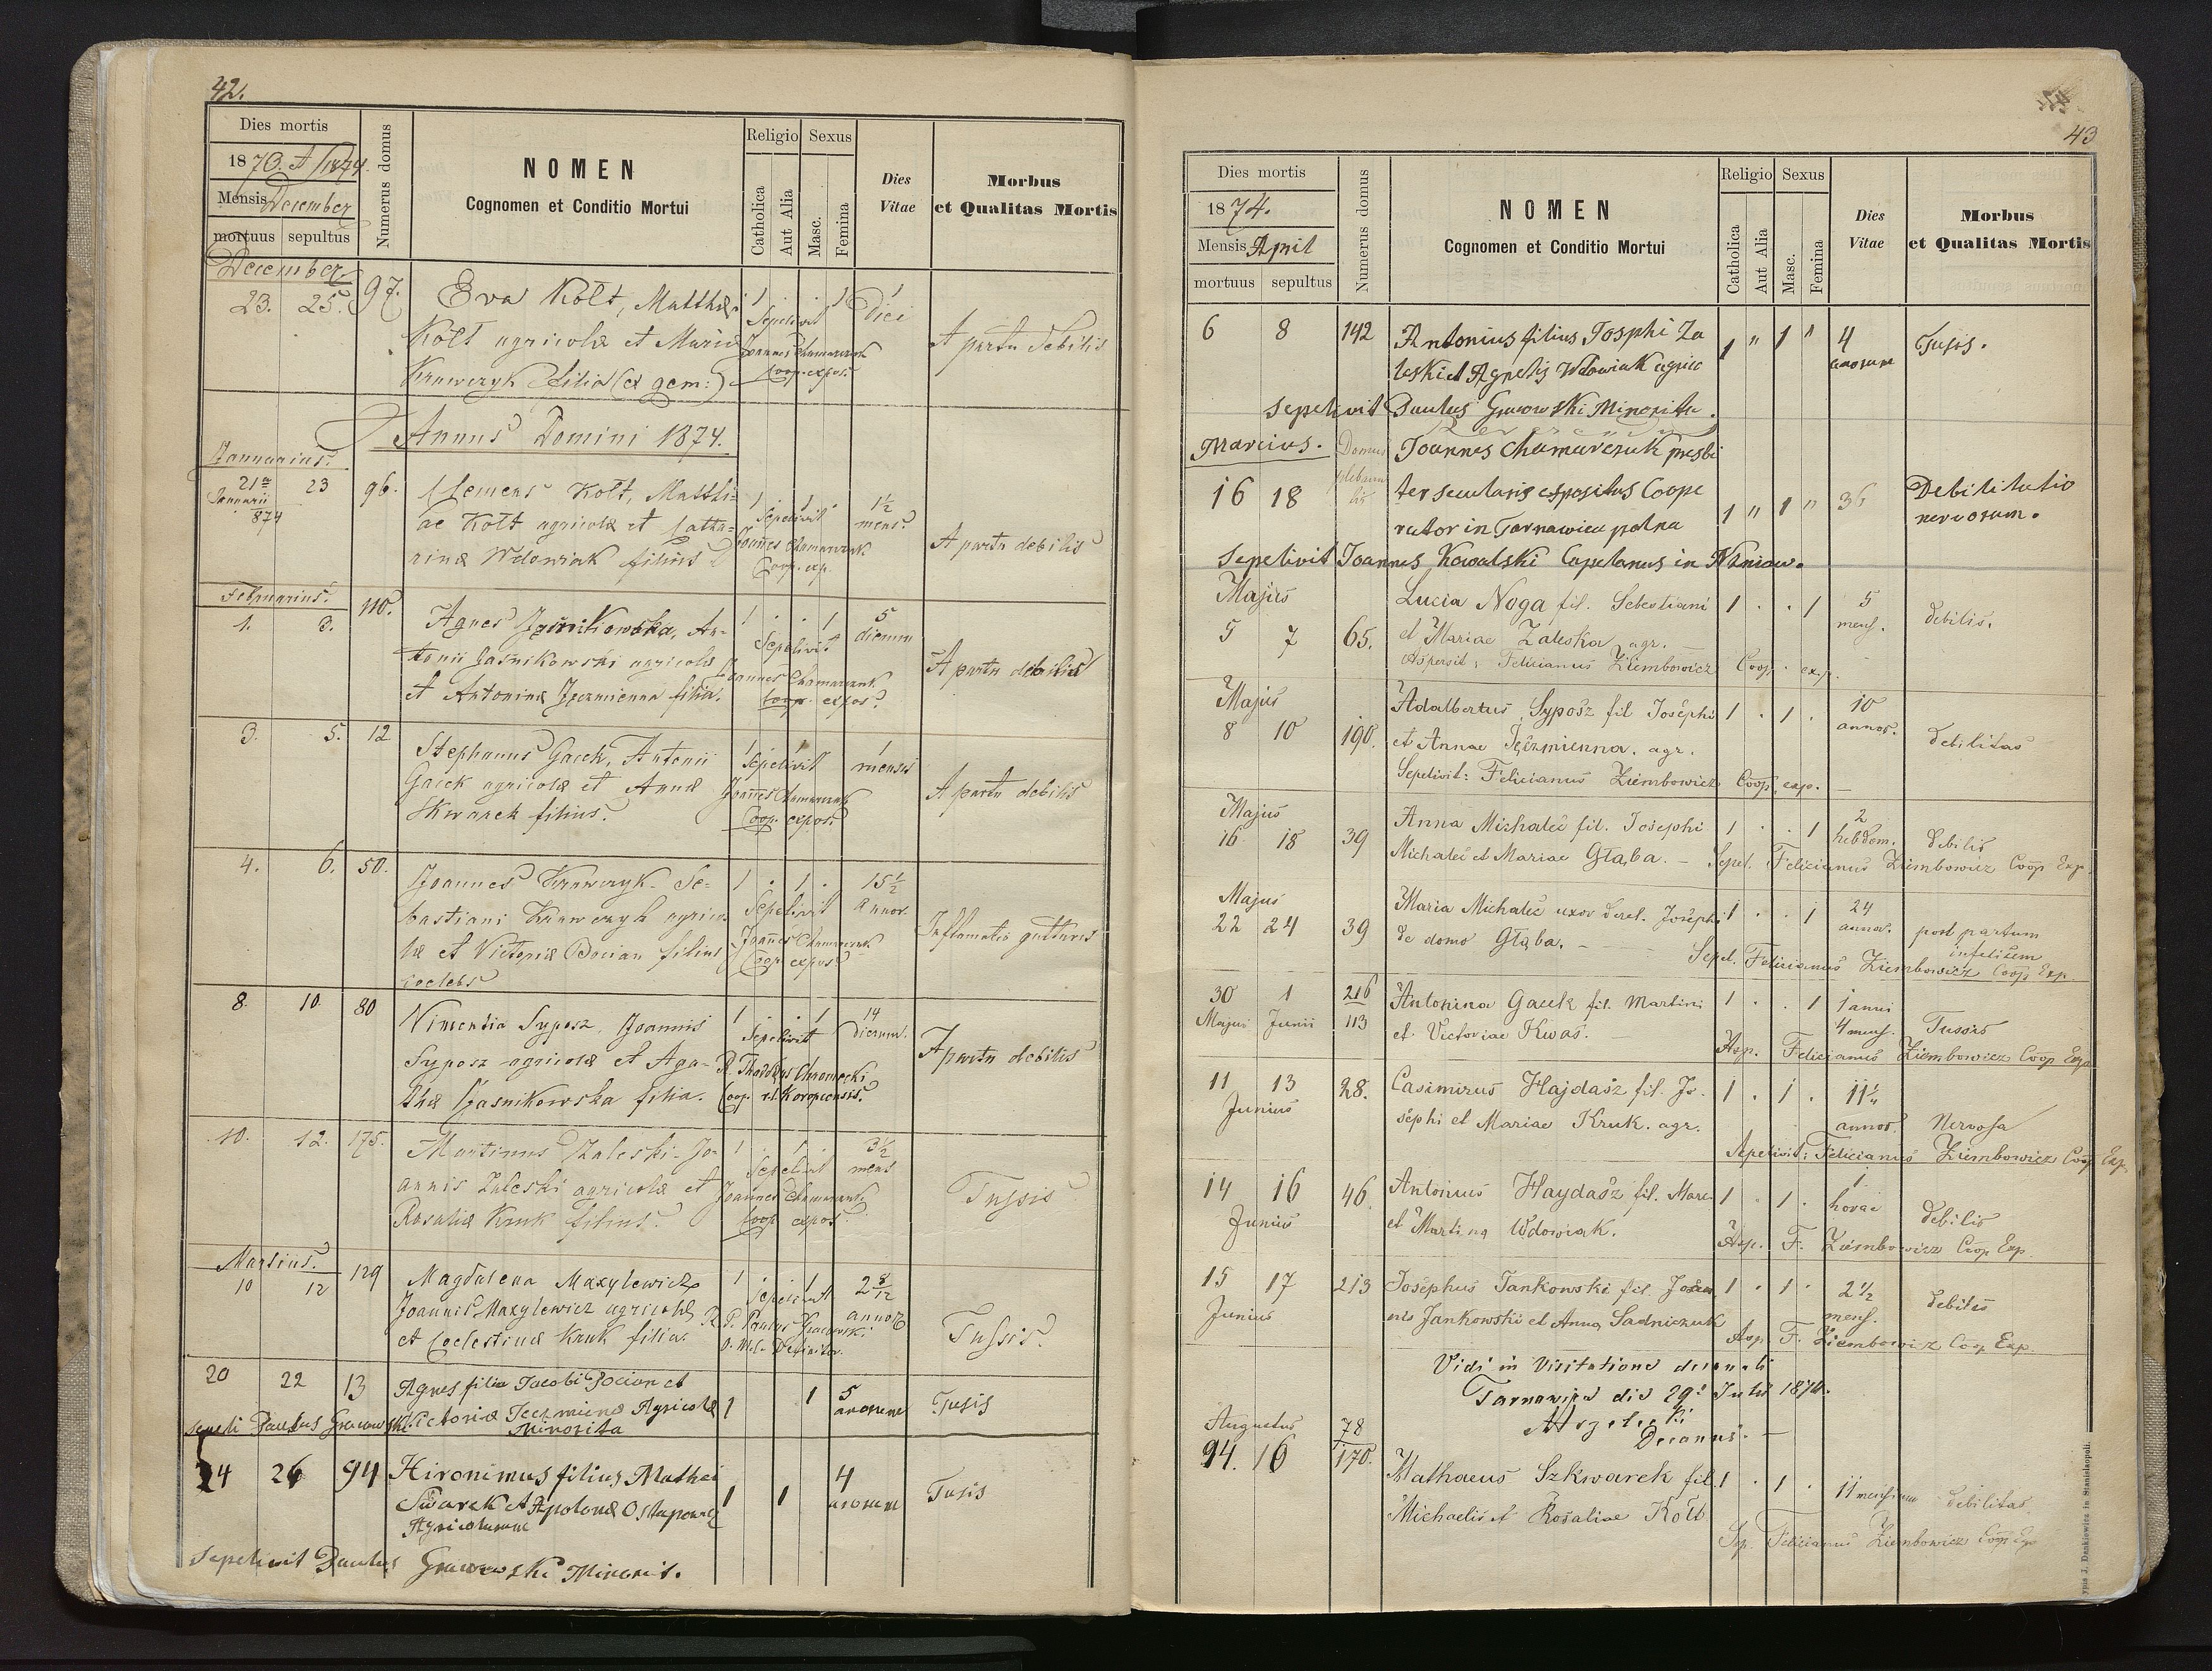 42.
Dies mortis
Numerus domus
NOMEN
Cognomen et Conditio Mortui
Religio
Sexus
Catholica
Aut Alia
Masc.
Femina
Dies
Vitae
Morbus
et Qualitas Mortis
Mensis December
mortuus sepultus
December
23. 25. 97. Eva Kołt, Matthiæ 1 . . 1 1 Diei
Kołt agricolæ et Mariæ Sepelivit Joannes Chamarczuk Coop. expos. A partu debilis
Krawczyk filia (ex gem:)
Annus Domini 1874.
Januarius.
21 Januarii 874 23 96. Clemens Kołt, Matthi= 1 . 1 . 1½ mens.
ae Kołt agricolæ et Catha= Sepelivit Joannes Chamarczuk Coop. exp. A partu debilis
rinæ Wdowiak filius
Februarius.
1. 3. 110. Agnes Jaśnikowska, An- 1 . . 1 5 dierum
tonii Jaśnikowski agricolæ Sepelivit Joannes Chamarczuk Coop. expos. A partu debilis
et Antoninæ Jęczmienna filia.
3. 5. 12 Stephanus Gacek, Antonii 1 . 1 . 1 mensis
Gacek agricolæ et Annæ Sepelivit Joannes Chamarczuk Coop. expos. A partu debilis
Skwarek filius.
4. 6. 50. Joannes Krawczyk Se= 1 . 1 . 15½ annor.
bastiani Krawczyk agrico= Sepelivit Joannes Chamarczuk Coop expos. Inflamatio gutturis
læ et Victoriæ Bocian filius
coelebs
8. 10. 80 Vincentia Syposz, Joannis 1 . . 1 14 dierum.
Syposz agricolæ et Aga- Sepelivit R. Thaddæus Chromecki Coop. r.l. Koropecensis. A partu debilis
thæ Jaśnikowska filia.
10. 12. 175. Martinus Zaleski Jo- 1 . 1 . 3½ mens
annis Zaleski agricolæ et Sepelivit Joannes Chamarczuk Coop expos. Tussis
Rosaliæ Kruk filius.
Martius.
10 12 129 Magdalena Maxylewicz 1 . . 1 2 8/12 annor
Joannis Maxylewicz agricolæ Sepelivit R. P. Paulus Gracowski O. M. C. Definitor. Tussis
et Coelestinæ Kruk filia.
20 22 13 Agnes filia Jacobi Bocian et 1 1 5 anorum Tusis
Victoriæ Jeczmienæ Agricolæ
sepeli Paulus Gracowski Minorita
24 26 94 Hironimus filius Mathei 1 1 4 anorum Tusis
Swarek et Apolonæ Ostapowicz
Agricolarum
Sepelivit Paulus Gracowski Minorit.
43
Dies mortis
1874.
Mensis April
mortuus sepultus
Numerus domus
NOMEN
Cognomen et Conditio Mortui
Religio
Sexus
Catholica
Aut Alia
Masc.
Femina
Dies
Vitae
Morbus
et Qualitas Mortis
6 8 142 Antonius filius Josphi Za 1 " 1 " 4 anorum Tusis.
leski et Agnetis Wdowiak agric
Sepelivit Paulus Gracowski Minorita.
Marcius. Domus Joannes Chamarczuk presbi
16 18 ter secularis expositus Coope 1 " 1 " 36 Debilitatio nervorum.
rator in Tarnawica polna
Sepelivit Joannes Kowalski Capelanus in Niżniow.
Majus Lucia Noga fil. Sebestiani 1 . . 1 5 mens. debilis.
5 7 65. et Mariae Zaleska agr.
Aspersit: Felicianus Ziembowicz Coop. exp.
Majus Adalbertus Syposz fil Josephi 1 . 1 . 10 annor. debilitas
8 10 190. et Annae Jęczmienna. agr.
Sepelivit: Felicianus Ziembowicz Coop. exp.
Majus Anna Michaleć fil. Josephi 1 . . 1 2 hebdom. debilis
16 18 39 Michaleć et Mariae Głąba. – Sepel. Felicianus Ziembowicz Coop Exp.
Majus Maria Michaleć uxor derel. Josephi 1 . . 1 24 annor. post partum infelicem
22 24 39 de domo Głąba. – Sepel. Felicianus Ziembowicz Coop Exp.
30 1 216 Antonina Gacek fil. Martini 1 . . 1 1 anni 4 mens. Tussis
Majus Junii 113 et Victoriae Kwas. Asp. Felicianus Ziembowicz Coop Exp
11 13 28. Casimirus Hajdasz fil. Jo- 1 . 1 . 11 annor. Nervosa
Junius sephi et Mariae Kruk. agr.
Sepelivit: Felicianus Ziembowicz Coop Exp.
14 16 46. Antonius Haydasz fil. Marc. 1 . 1 . 1 horae debilis
Junius et Martina Wdowiak. Asp. F. Ziembowicz Coop Exp.
15 17 213 Josephus Jankowski fil. Joan 1 . 1 . 2½ mens. debilis
Junius nis Jankowski et Anna Sadniczuk Asp. F. Ziembowicz Coop Exp.
Vidi in Visitatione decanali
Tarnawica die 29 Julii 1874.
Decanus. –
Augustus 78
14. 16 170. Mathaeus Szkwarek fil. 1 . 1 . 11 mensium debilitas
Michaelis et Rosaliae Kołt
Sep. Felicianus Ziembowicz Coop Exp
J. Dankiewicz in Stanislaopoli.